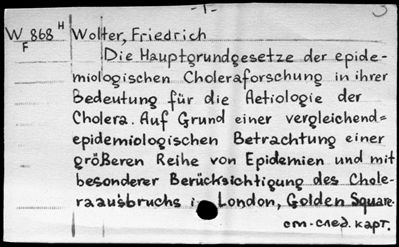 -1- 3
W 868 H Wolter, Friedrich
F
Die Hauptgrundgesetze der epide-
miologischen Choleraforschung in ihrer
Bedeutung für die Aetiologie der
Cholera. Auf Grund einer vergleichend=
epidemiologischen Betrachtung einer
größeren Reihe von Epidemien und mit
besonderer Berücksichtigung des Chole-
raausbruchs London, Golden Square.
см. след. карт.